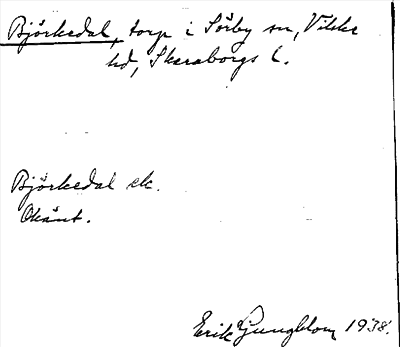 Björkedal, torp i Sörby sn, Vilske
hd, Skaraborgs l.
Björkedal ek.
Okänt.
Erik Ljungblom 1938.